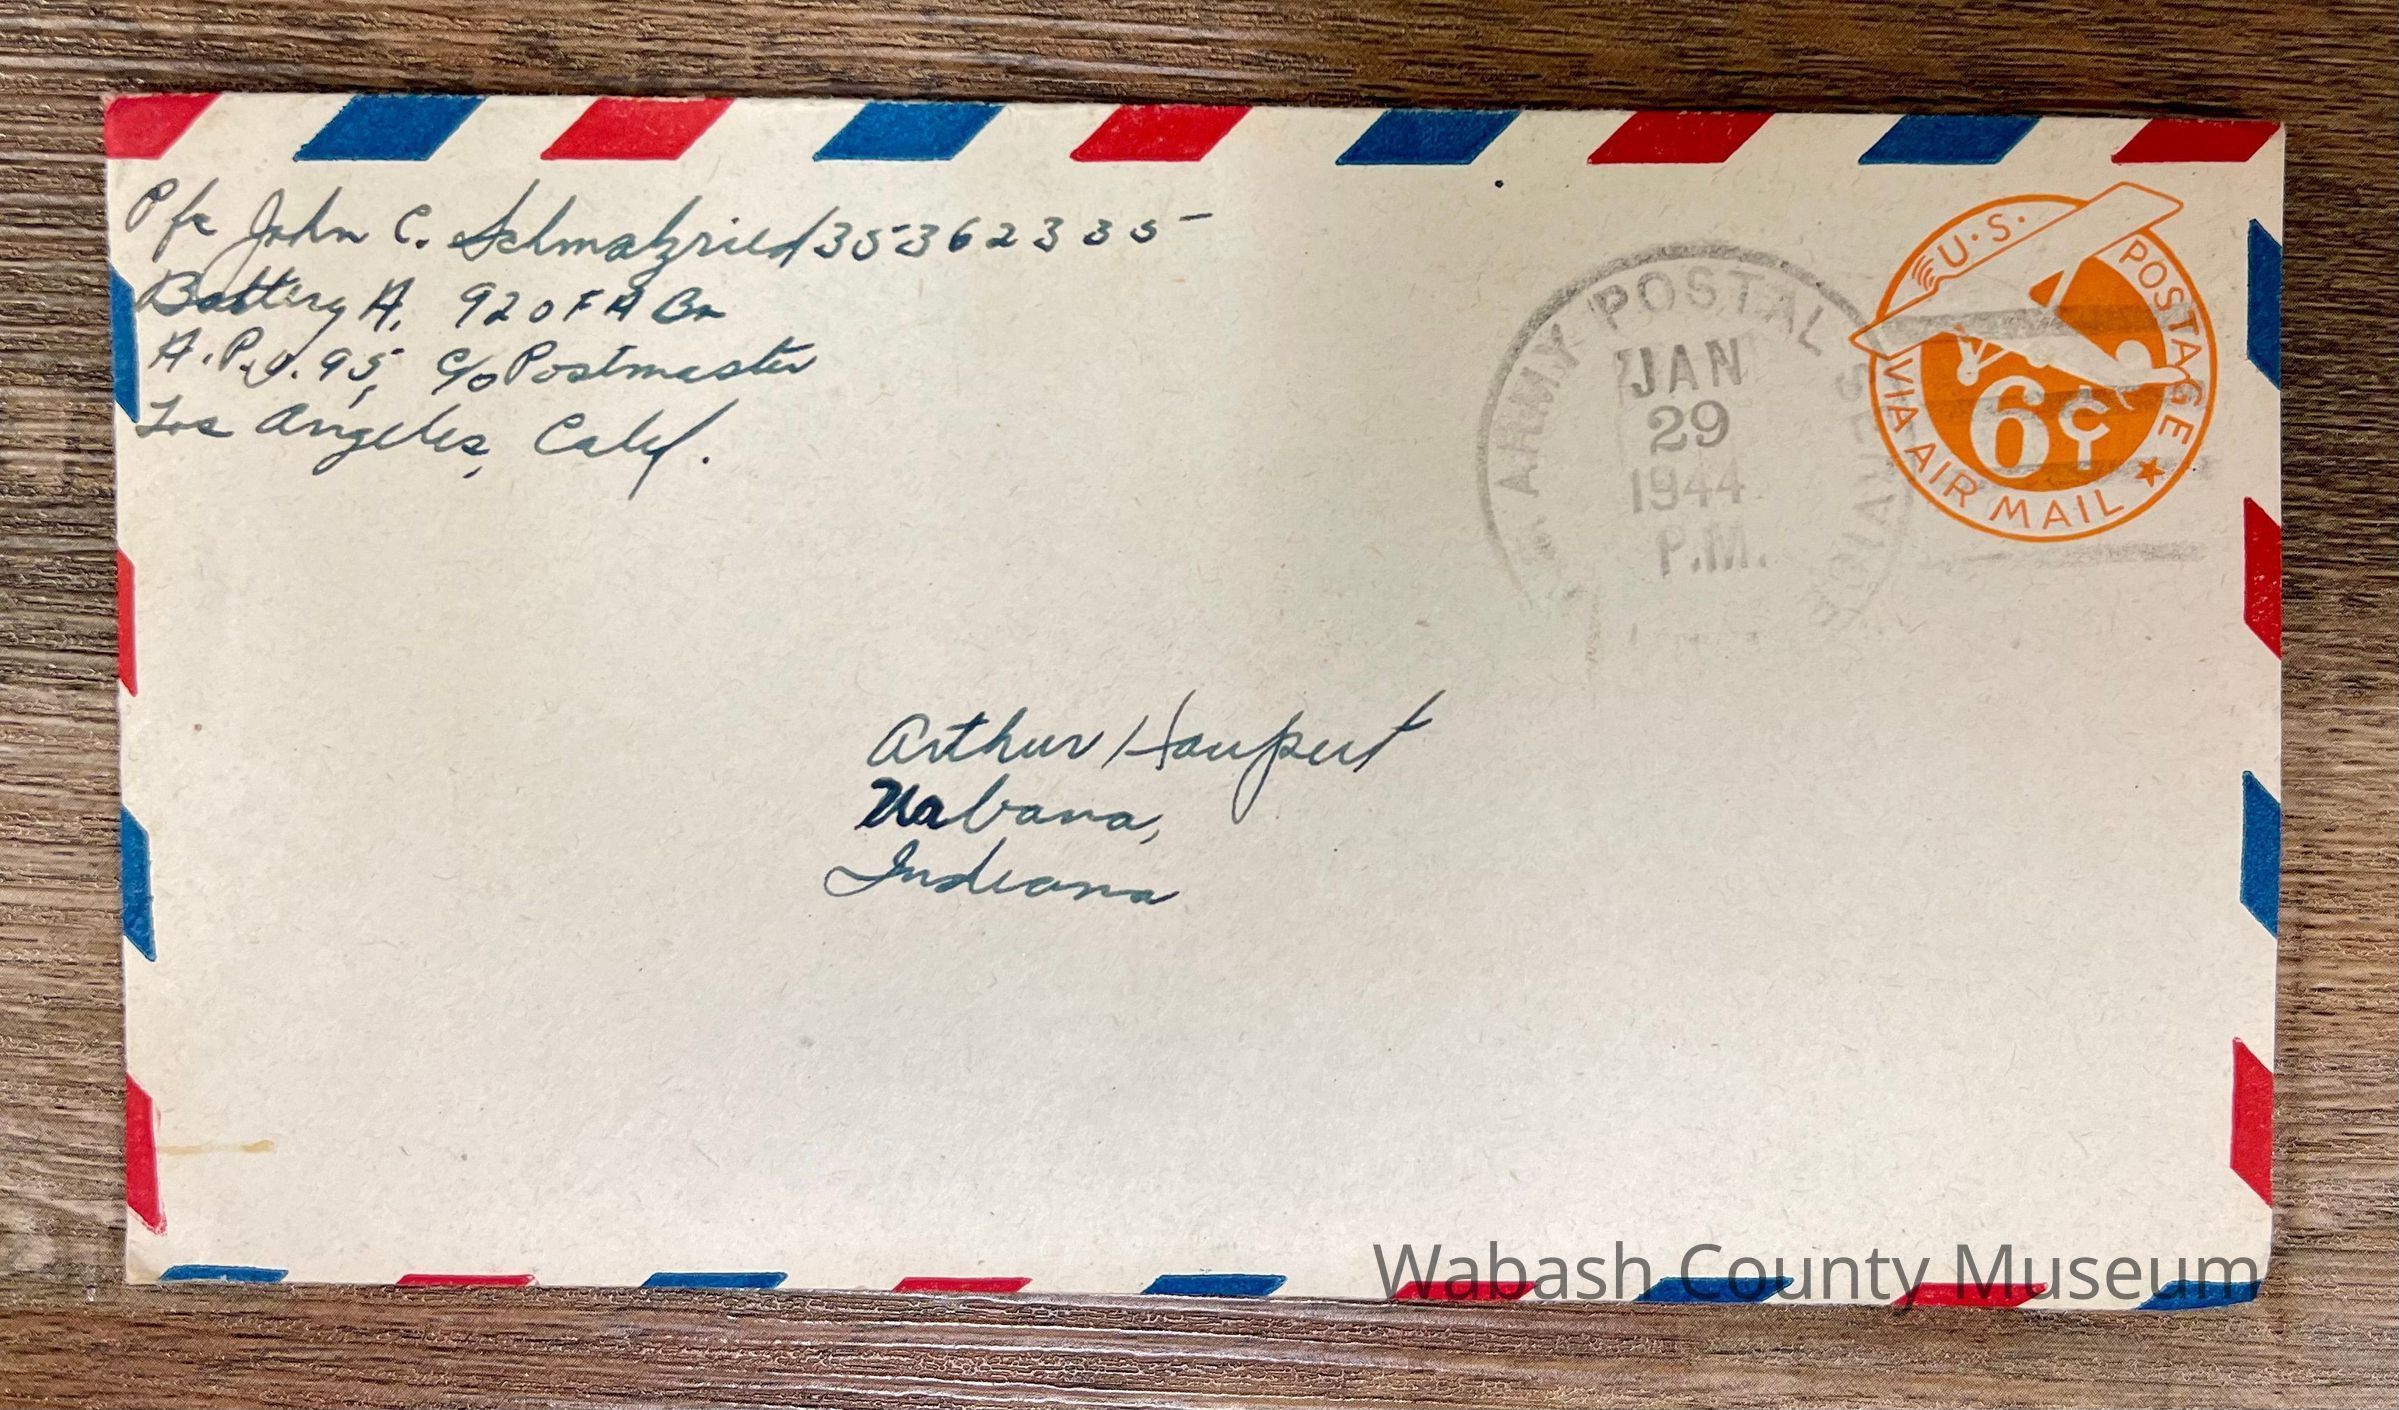 Pfc John C. Schmalzried 35362335
Battery A, 920 F A Bn
A.P.O. 95, c/o Postmaster
Los Angeles, Calif.
ARMY POSTAL SERVICE
JAN
29
1944
P.M.
U.S. POSTAGE
6¢
VIA AIR MAIL
Arthur Haupert
Urbana,
Indiana
Wabash County Museum